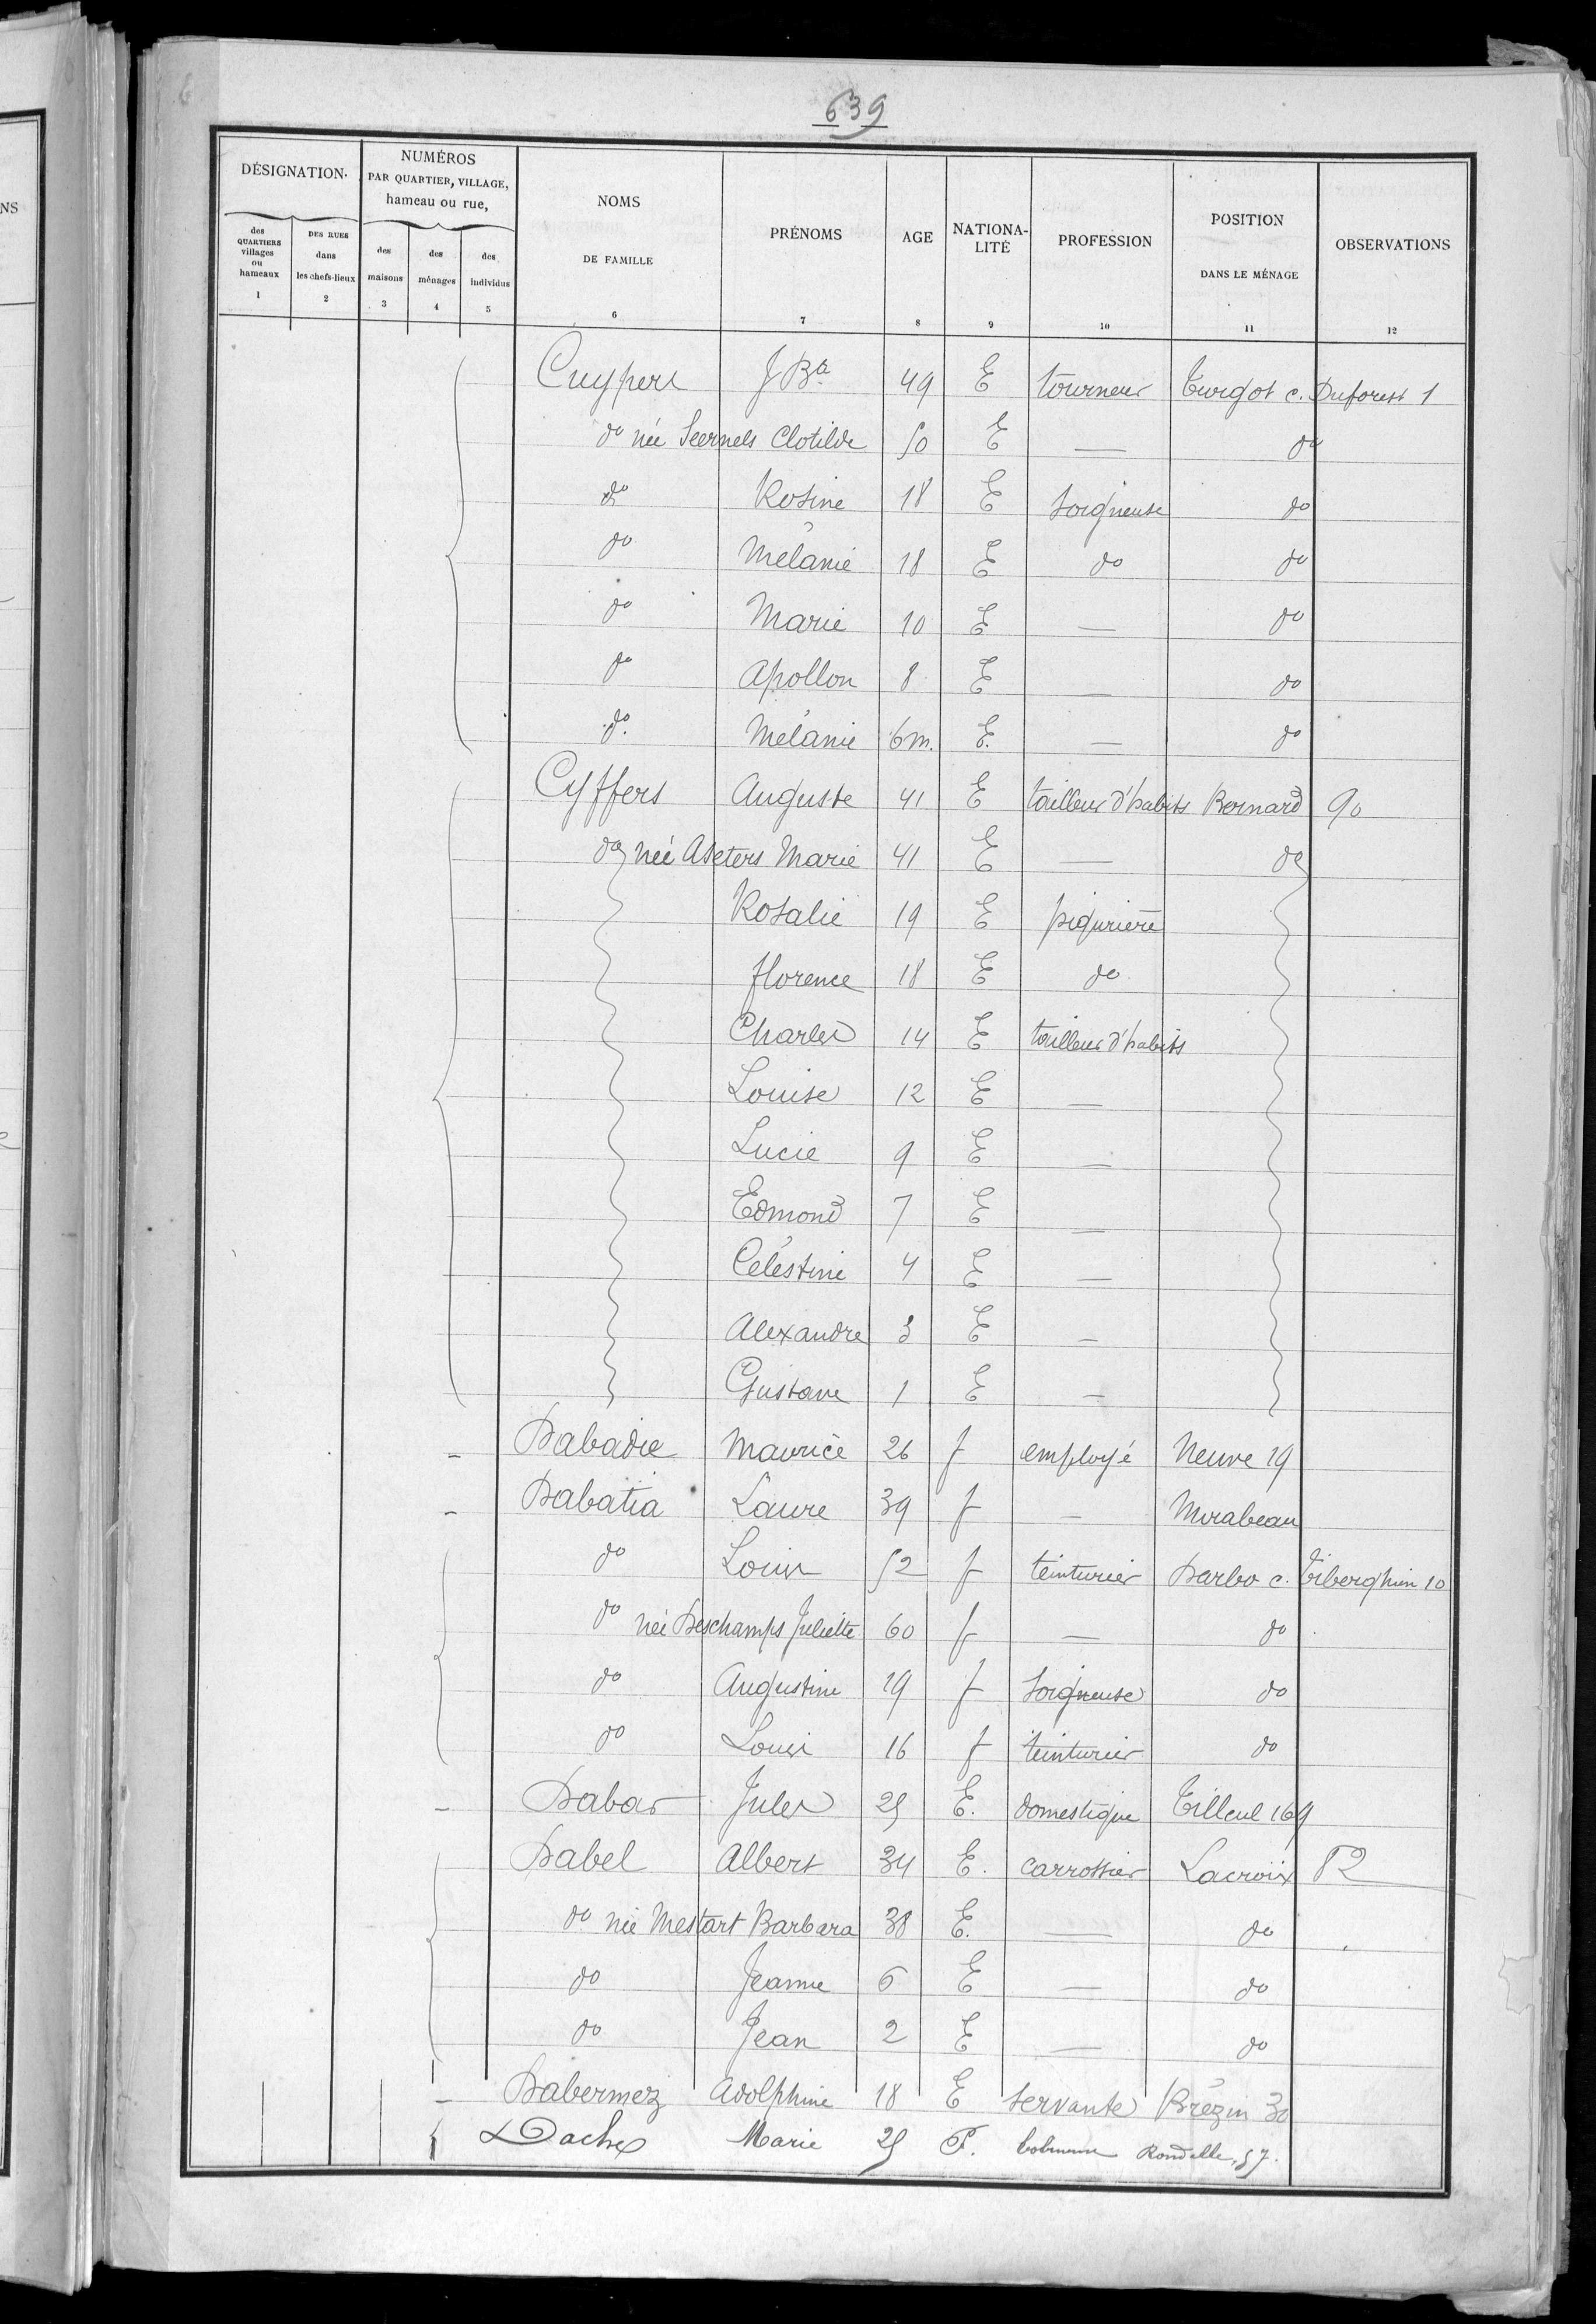 639
NS
DÉSIGNATION.
NUMÉROS
PAR QUARTIER, VILLAGE,
hameau ou rue,
des QUARTIERS villages ou hameaux
DES RUES dans les chefs-lieux
des maisons
des ménages
des individus
NOMS
DE FAMILLE
PRÉNOMS
AGE
NATIONA-
LITÉ
PROFESSION
POSITION
DANS LE MÉNAGE
OBSERVATIONS
1 2 3 4 5 6 7 8 9 10 11 12
Cuypers J Bte 49 E tourneur Turgot c. Duforest 1
do née Seernels Clotilde 50 E — do
do Rosine 18 E soigneuse do
do Mélanie 18 E do do
do Marie 10 E — do
do Apollon 8 E — do
do Mélanie 6 m. E. — do
Cyffers Auguste 41 E tailleur d'habits Bernard 90
do née Aseters Marie 41 E — do
Rosalie 19 E piqurière
florence 18 E do
Charles 14 E tailleur d'habits
Louise 12 E —
Lucie 9 E —
Edmond 7 E —
Célestine 4 E —
Alexandre 3 E —
Gustave 1 E —
Dabadie Maurice 26 f employé Neuve 19
Dabatia Laure 39 f — Mirabeau
do Louis 52 f teinturier Darbo c. Tiberghien 10
do née Deschamps Juliette 60 f — do
do Augustine 19 f soigneuse do
do Louis 16 f teinturier do
Dabar Jules 25 E. domestique Tilleul 169
Dabel Albert 34 E. carrossier Lacroix 82
do née Mestart Barbara 38 E. — do
do Jeanne 6 E — do
do Jean 2 E — do
Dabermez Adolphine 18 E servante Brézin 30
Dachy Marie 25 F. Rondelle, 57.